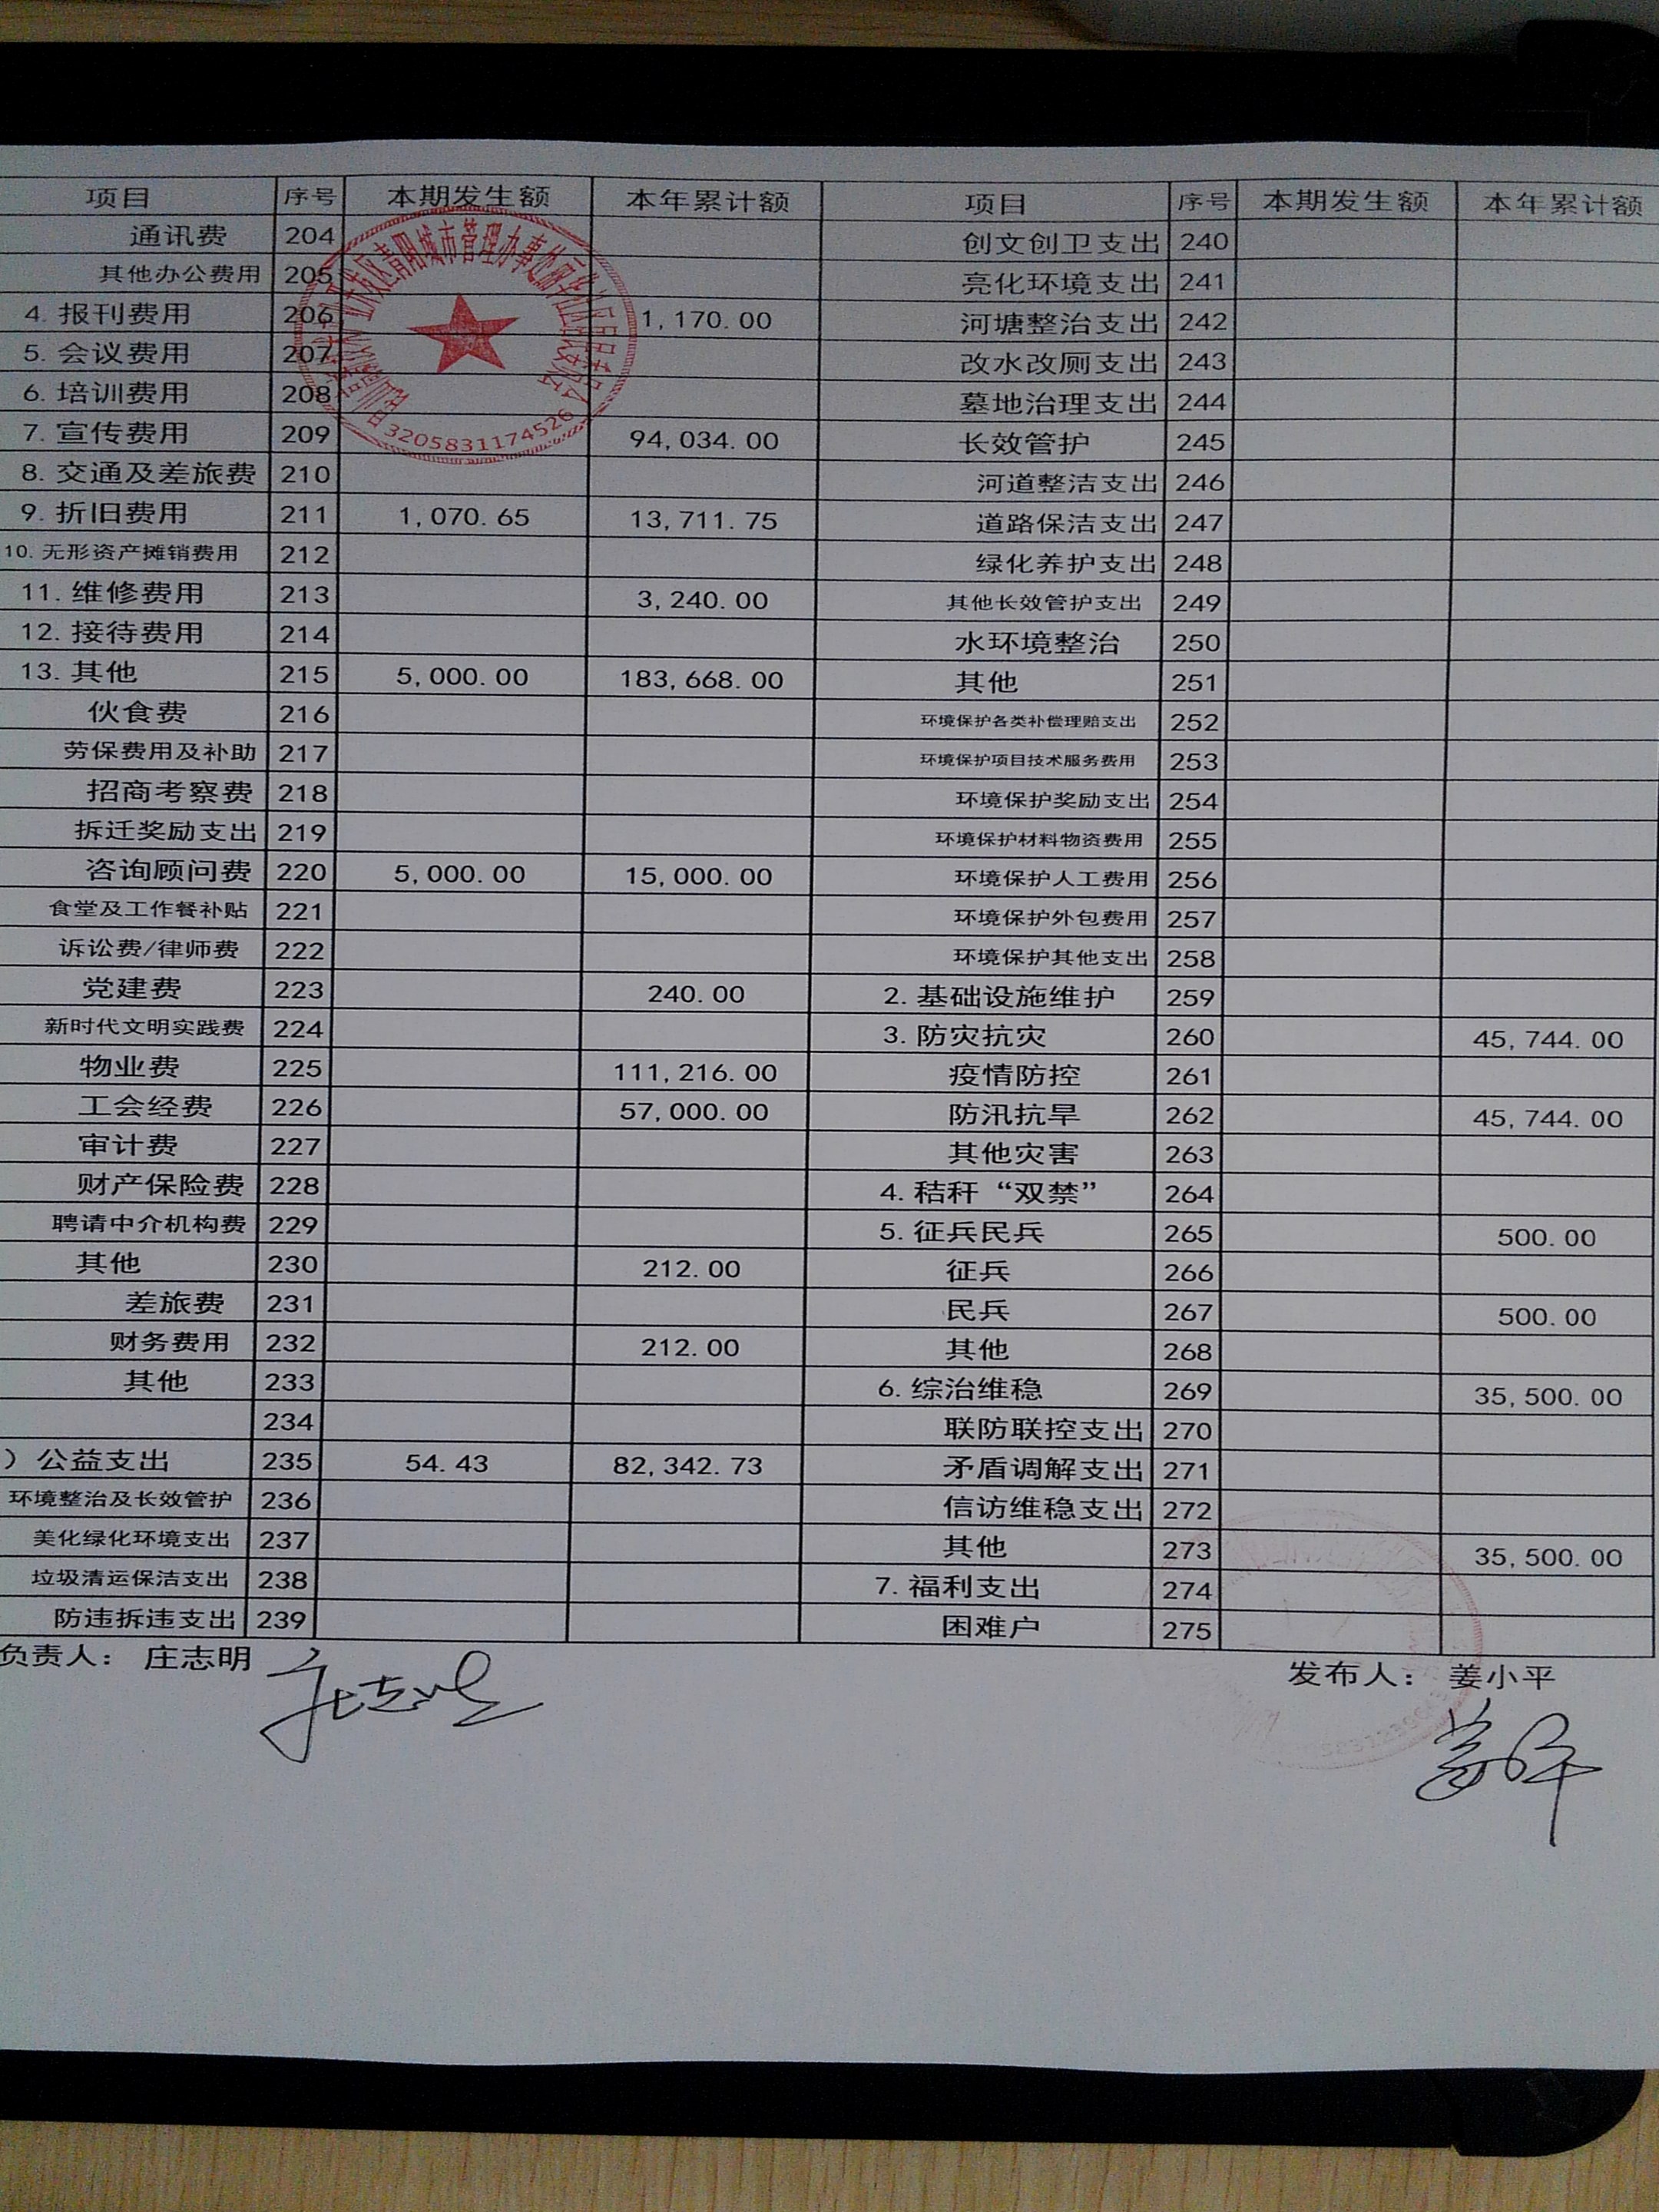 项目 序号 本期发生额 本年累计额 项目 序号 本期发生额 本年累计额
通讯费 204 创文创卫支出 240
其他办公费用 205 亮化环境支出 241
4. 报刊费用 206 1,170.00 河塘整治支出 242
5. 会议费用 207 改水改厕支出 243
6. 培训费用 208 墓地治理支出 244
7. 宣传费用 209 94,034.00 长效管护 245
8. 交通及差旅费 210 河道整洁支出 246
9. 折旧费用 211 1,070.65 13,711.75 道路保洁支出 247
10. 无形资产摊销费用 212 绿化养护支出 248
11. 维修费用 213 3,240.00 其他长效管护支出 249
12. 接待费用 214 水环境整治 250
13. 其他 215 5,000.00 183,668.00 其他 251
伙食费 216 环境保护各类补偿理赔支出 252
劳保费用及补助 217 环境保护项目技术服务费用 253
招商考察费 218 环境保护奖励支出 254
拆迁奖励支出 219 环境保护材料物资费用 255
咨询顾问费 220 5,000.00 15,000.00 环境保护人工费用 256
食堂及工作餐补贴 221 环境保护外包费用 257
诉讼费/律师费 222 环境保护其他支出 258
党建费 223 240.00 2. 基础设施维护 259
新时代文明实践费 224 3. 防灾抗灾 260 45,744.00
物业费 225 111,216.00 疫情防控 261
工会经费 226 57,000.00 防汛抗旱 262 45,744.00
审计费 227 其他灾害 263
财产保险费 228 4. 秸秆“双禁” 264
聘请中介机构费 229 5. 征兵民兵 265 500.00
其他 230 212.00 征兵 266
差旅费 231 民兵 267 500.00
财务费用 232 212.00 其他 268
其他 233 6. 综治维稳 269 35,500.00
234 联防联控支出 270
）公益支出 235 54.43 82,342.73 矛盾调解支出 271
环境整治及长效管护 236 信访维稳支出 272
美化绿化环境支出 237 其他 273 35,500.00
垃圾清运保洁支出 238 7. 福利支出 274
防违拆违支出 239 困难户 275
负责人： 庄志明 发布人： 姜小平
庄志明
姜小平
3205831174526